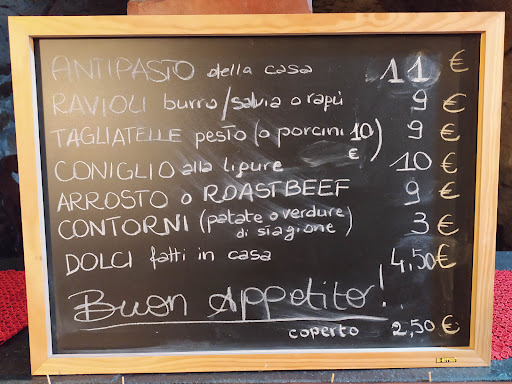 ANTIPASTO della casa 11 €
RAVIOLI burro/salvia o rapù 9 €
TAGLIATELLE pesto (o porcini 10 €) 9 €
CONIGLIO alla lipure 10 €
ARROSTO o ROASTBEEF 9 €
CONTORNI (patate o verdure di stagione) 3 €
DOLCI fatti in casa 4,50 €
Buon Appetito!
coperto 2,50 €